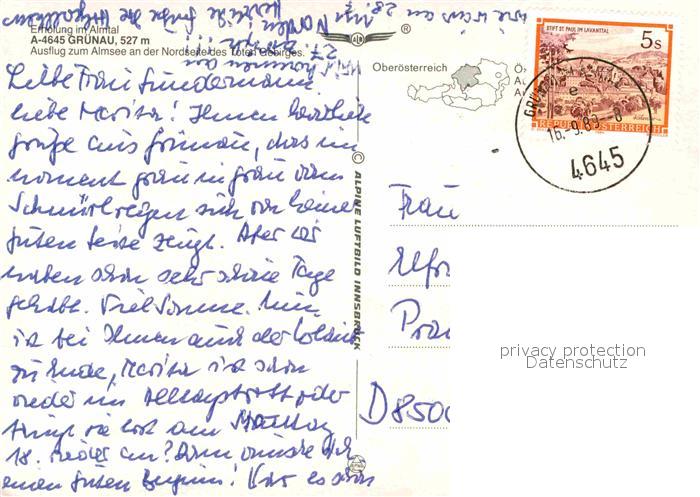 Erholung im Almtal
A-4645 GRÜNAU, 527 m
Ausflug zum Almsee an der Nordseite des Toten Gebirges.
®
Oberösterreich
STIFT ST. PAUL IM LAVANTTAL
5s
REPUBLIK ÖSTERREICH
16.-9.89-8
4645
© ALPINE LUFTBILD INNSBRUCK
Liebe Frau
liebe Marita! Ihnen herzliche
Grüße aus Grünau, das im
Moment grau in grau
Schnürlregen sich von keiner
guten Seite zeigt. Aber wir
haben schon sehr schöne Tage
gehabt. Viel Sonne. Nun
ist bei Ihnen auch der
zu Ende, Marita ist schon
wieder im Alltagstrott oder
fängt sie erst am Montag
18. wieder an? Dann wünsche ich
einen guten Beginn! War es schön
wie war's
am 28.
27.
Frau
D8500
privacy protection
Datenschutz